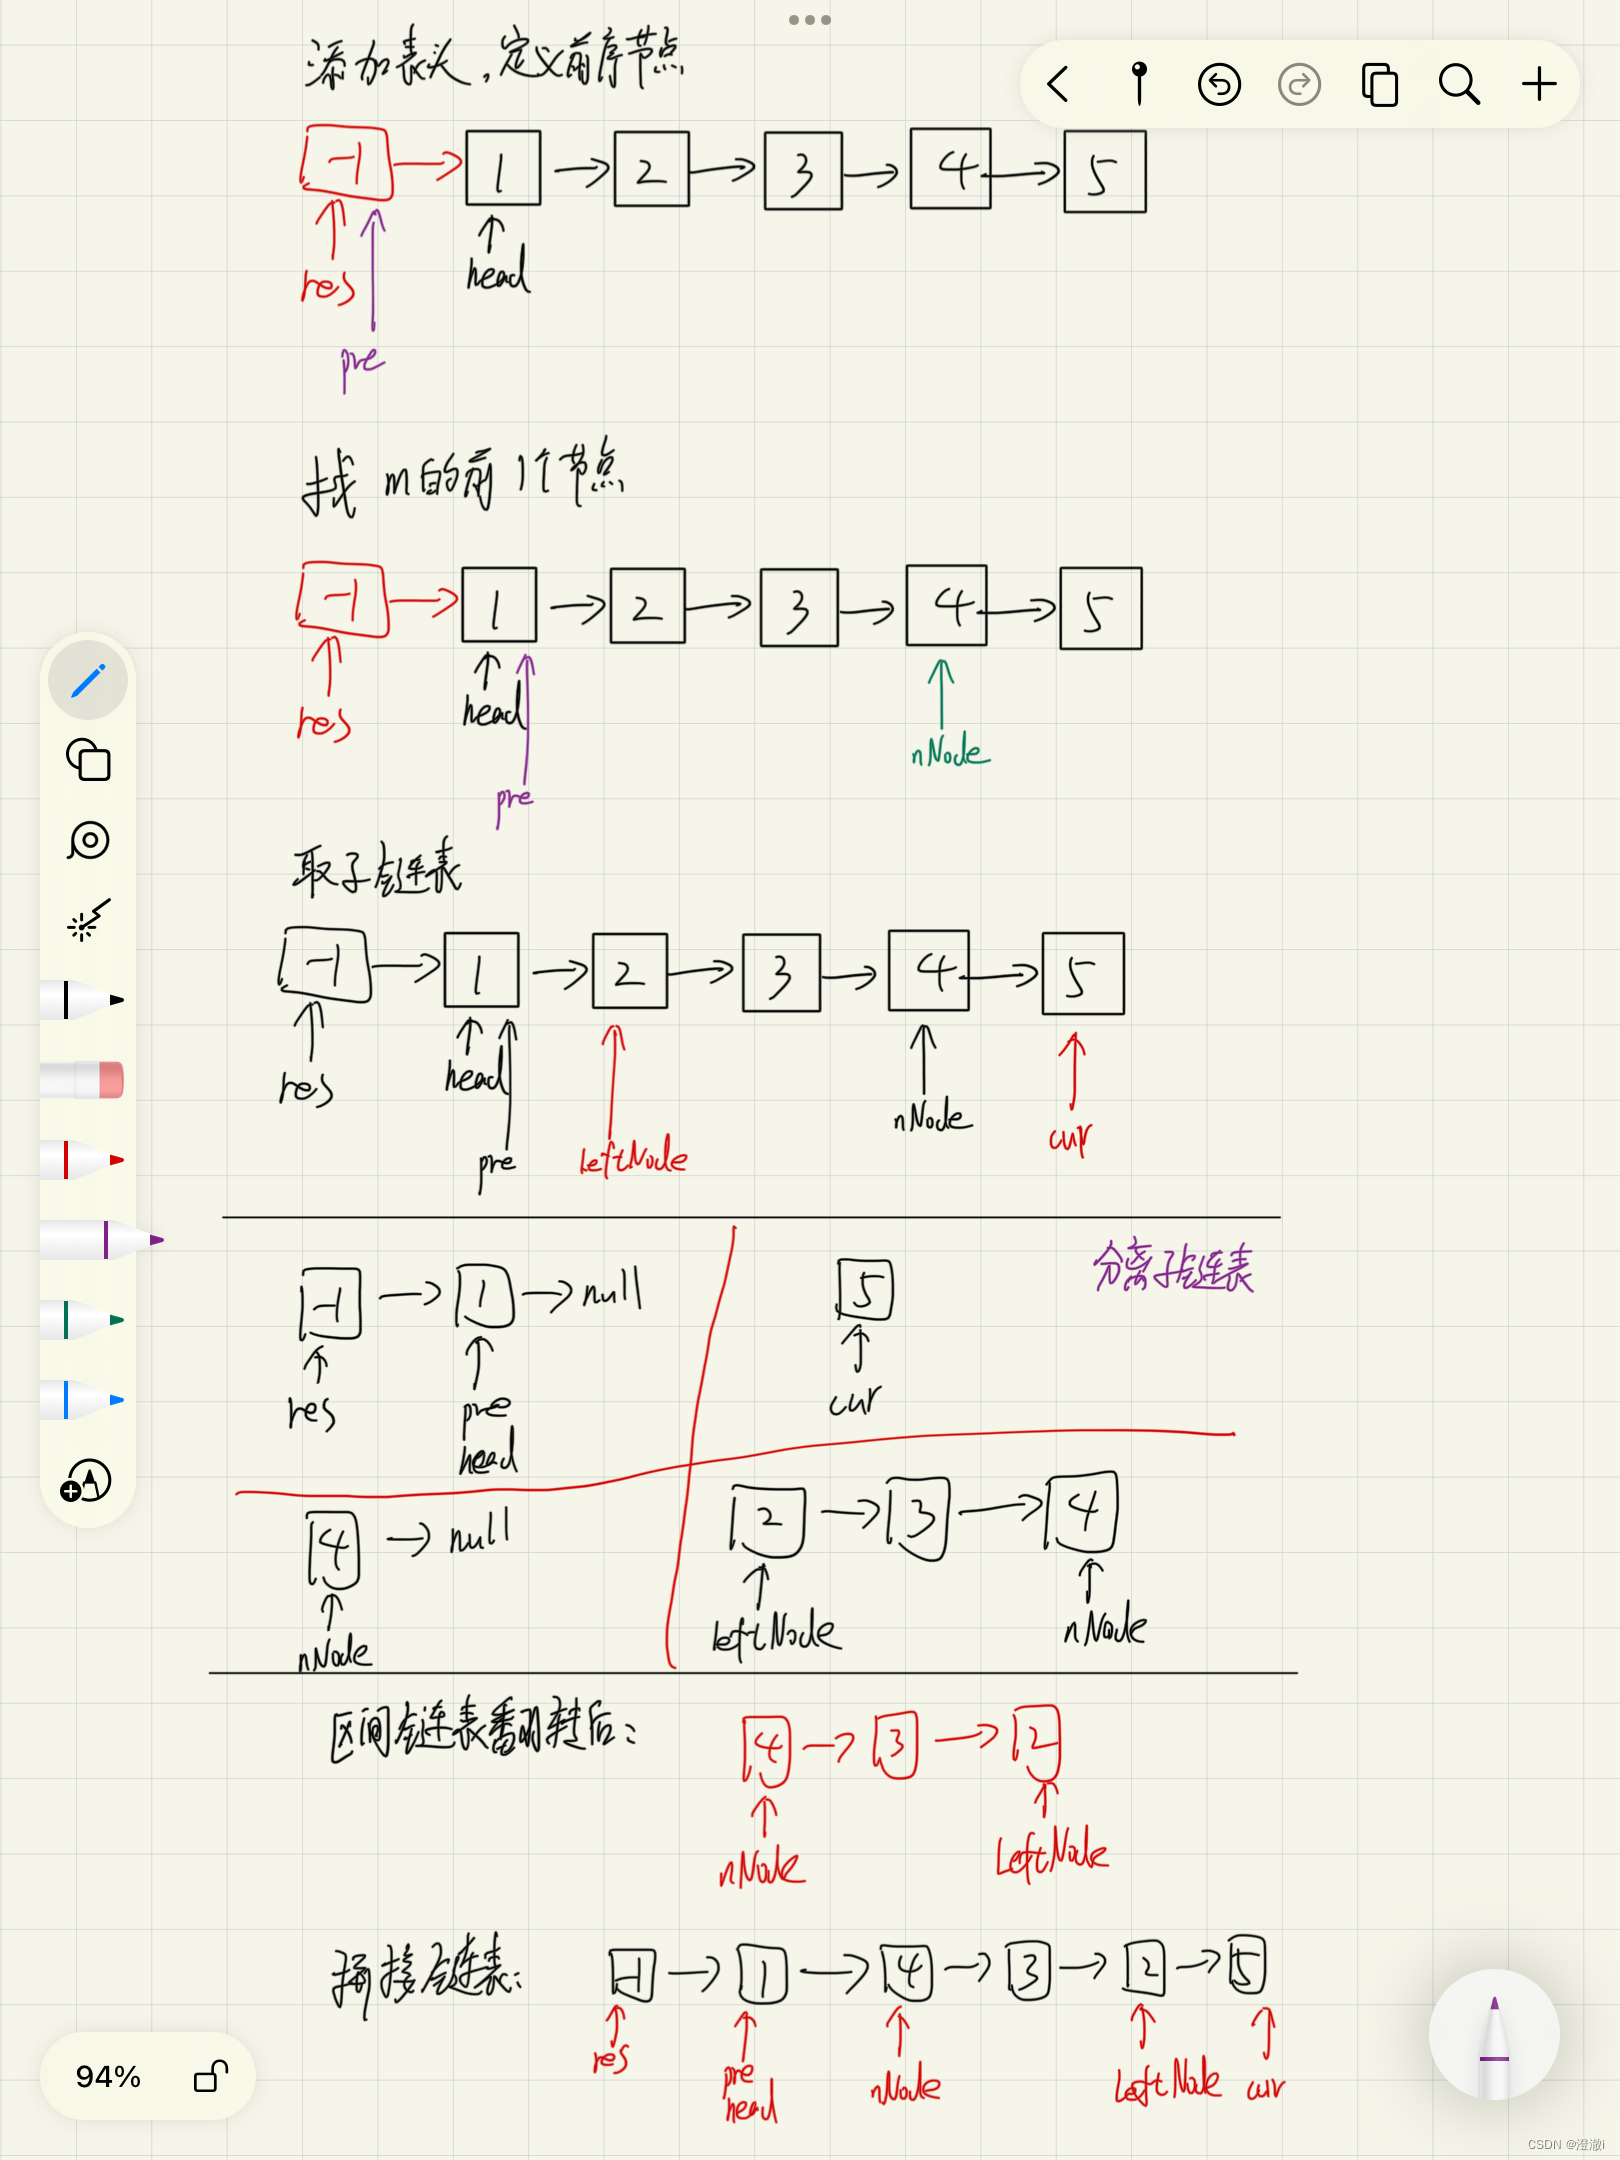 添加表头,定义前序节点
-1 1 2 3 4 5
res head
pre
找 m的前1个节点
-1 1 2 3 4 5
res head nNode
pre
取子链表
-1 1 2 3 4 5
res head nNode cur
pre leftNode
分离子链表
-1 1 null 5
res pre cur
head
4 null 2 3 4
nNode leftNode nNode
区间链表翻转后: 4 3 2
nNode LeftNode
拼接链表: -1 1 4 3 2 5
res pre nNode LeftNode cur
head
94%
CSDN @澄澈i